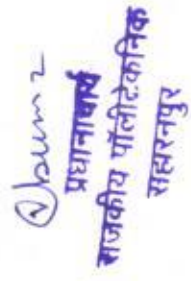 प्रधानाचार्य
राजकीय पॉलीटेकनिक
सहारनपुर